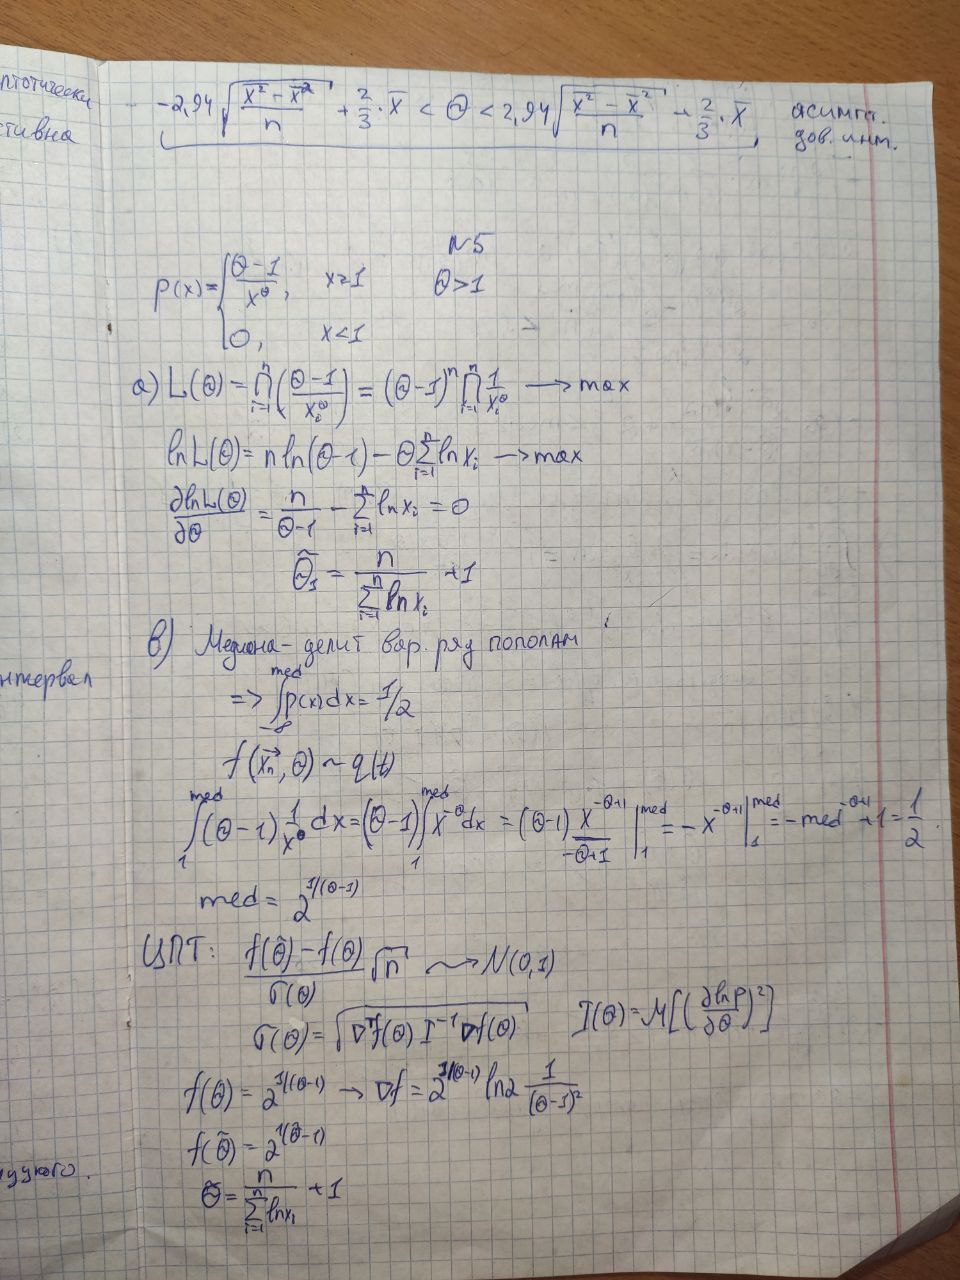 птотически
ктивна
-2,94 √((x̄² - x̄²)/n) + 2/3 · x̄ < Θ < 2,94 √((x̄² - x̄²)/n) + 2/3 · x̄, асимпт. дов. инт.
N5
p(x) = { (Θ-1)/x^Θ, x≥1 Θ>1
0, x<1
a) L(Θ) = ∏_{i=1}^{n} ((Θ-1)/x_i^Θ) = (Θ-1)^n ∏_{i=1}^{n} 1/x_i^Θ → max
lnL(Θ) = n ln(Θ-1) - Θ ∑_{i=1}^{n} ln x_i → max
∂lnL(Θ)/∂Θ = n/(Θ-1) - ∑_{i=1}^{n} ln x_i = 0
Θ̃_1 = n/(∑_{i=1}^{n} ln x_i) + 1
в) Медиана - делит вар. ряд пополам
нтервал
=> ∫_{-∞}^{med} p(x)dx = 1/2
f(x⃗_n, Θ) ~ q(t)
∫_1^{med} (Θ-1) 1/x^Θ dx = (Θ-1) ∫_1^{med} x^{-Θ} dx = (Θ-1) x^{-Θ+1}/(-Θ+1) |_1^{med} = -x^{-Θ+1} |_1^{med} = -med^{-Θ+1} + 1 = 1/2
med = 2^{1/(Θ-1)}
ЦПТ: (f(Θ̃) - f(Θ))/σ(Θ) √n ⇝ N(0,1)
σ(Θ) = √(∇^T f(Θ) I^{-1} ∇f(Θ)) I(Θ) = M[(∂lnp/∂Θ)²]
f(Θ) = 2^{1/(Θ-1)} → ∇f = 2^{1/(Θ-1)} ln2 1/(Θ-1)²
f(Θ̃) = 2^{1/(Θ̃-1)}
Θ̃ = n/(∑_{i=1}^{n} ln x_i) + 1